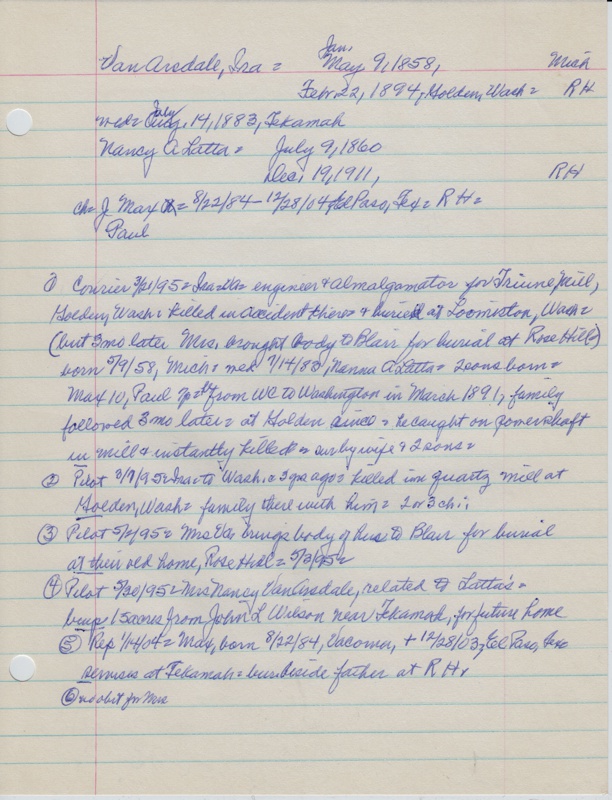 Jan.
Van Arsdale, Ira = May 9, 1858, Mich
Febr. 22, 1894, Golden, Wash = RH
July
wed = Aug. 14, 1883, Tekamah
Nancy A Latta = July 9, 1860
Dec, 19, 1911, RH
ch = J Max = 8/22/84 - 12/28/04, El Paso, Tex = R H =
Paul
① Courier 3/21/95 = Ira = engineer & almalgamator for Triune Mill,
Golden, Wash = killed in accident there & buried at Loomiston, Wash =
(but 3 mo later Mrs. brought body to Blair for burial at Rose Hill)
born 5/9/58, Mich = wed 7/14/83, Nanna A Latta = 2 sons born =
Max 10, Paul from WC to Washington in March 1891, family
followed 3 mo later = at Golden since = he caught on power shaft
in mill & instantly killed = sur by wife & 2 sons =
② Pilot 3/7/95 = Ira to Wash. = 3 yrs ago = killed in quartz mill at
Golden, Wash = family there with him = 2 or 3 ch;
③ Pilot 5/2/95 = Mrs Va brings body of hus to Blair for burial
at their old home, Rose Hill = 5/3/95 =
④ Pilot 5/30/95 = Mrs Nancy VanArsdale, related to Latta's =
buys 15 acres from John L Wilson near Tekamah, for future home
⑤ Rep 1/14/04 = Max, born 8/22/84, Vacoma, + 12/28/03, El Paso, Tex
services at Tekamah = bur. beside father at R H,
⑥ no obit for Mrs